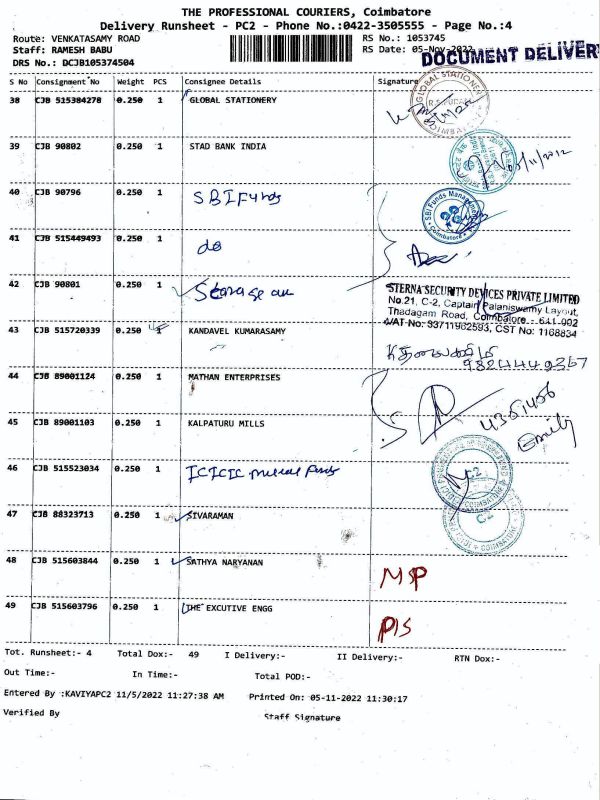 THE PROFESSIONAL COURIERS, Coimbatore
Delivery Runsheet - PC2 - Phone No.:0422-3505555 - Page No.:4
Route: VENKATASAMY ROAD RS No.: 1053745
Staff: RAMESH BABU RS Date: 05-Nov-2022
DRS No.: DCJB105374504 DOCUMENT DELIVER
S No Consignment No Weight PCS Consignee Details Signature
38 CJB 515384278 0.250 1 GLOBAL STATIONERY
GLOBAL STATIONER
COIMBAT
39 CJB 90802 0.250 1 STAD BANK INDIA
40 CJB 90796 0.250 1 SBI Funds
SBI Funds Management
Coimbatore
41 CJB 515449493 0.250 1 do
42 CJB 90801 0.250 1 Storage
STERNA SECURITY DEVICES PRIVATE LIMITED
No.21, C-2, Captain Palaniswamy Layout,
Thadagam Road, Coimbatore - 641 002
VAT No: 33711962593, CST No: 1168834
43 CJB 515720339 0.250 1 KANDAVEL KUMARASAMY
44 CJB 89001124 0.250 1 MATHAN ENTERPRISES
45 CJB 89001103 0.250 1 KALPATURU MILLS
4351456
Emily
46 CJB 515523034 0.250 1 ICICIC mutual funds
C2
47 CJB 88323713 0.250 1 SIVARAMAN
COIMBATORE
48 CJB 515603844 0.250 1 SATHYA NARYANAN MSP
49 CJB 515603796 0.250 1 THE EXCUTIVE ENGG PIS
Tot. Runsheet:- 4 Total Dox:- 49 I Delivery:- II Delivery:- RTN Dox:-
Out Time:- In Time:- Total POD:-
Entered By :KAVIYAPC2 11/5/2022 11:27:38 AM Printed On: 05-11-2022 11:30:17
Verified By Staff Signature